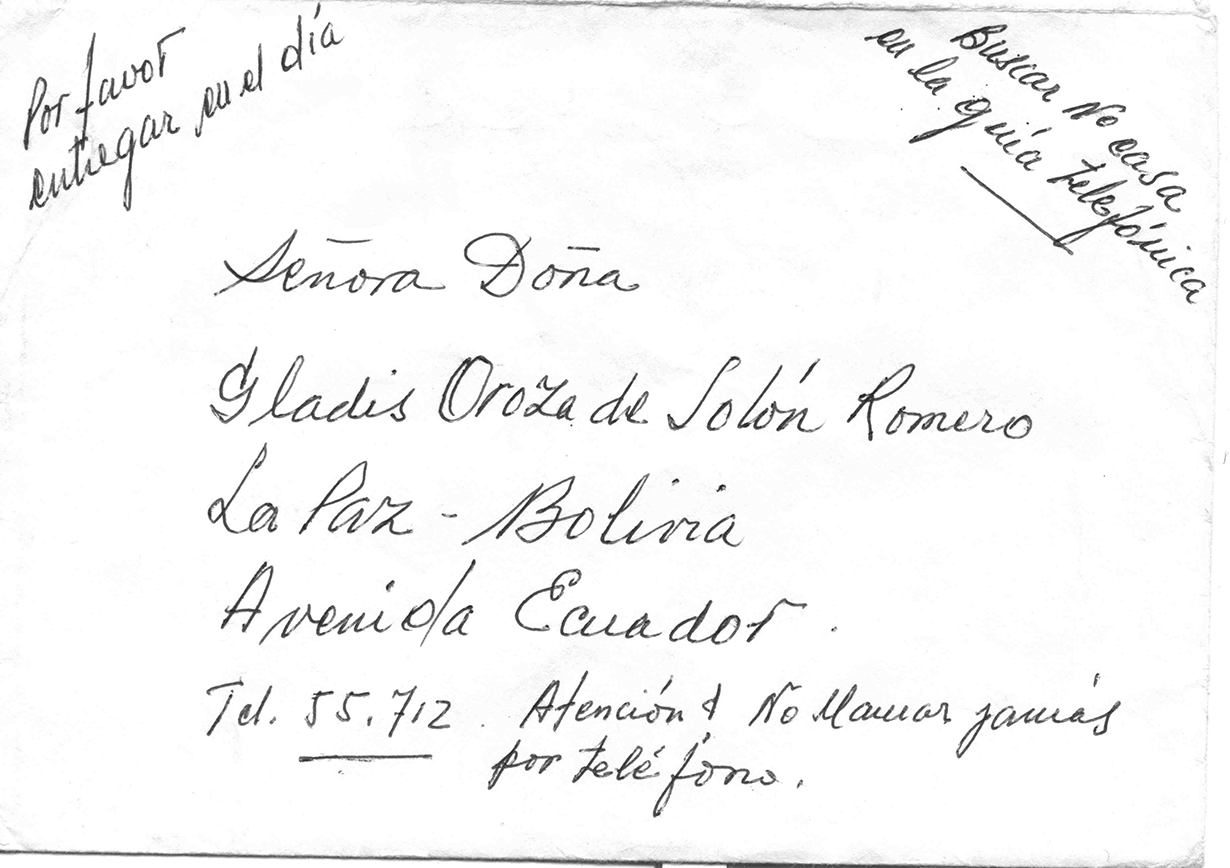 Por favor
entregar en el día
Buscar No casa
en la guía telefónica
Señora Doña
Gladis Oroza de Solón Romero
La Paz - Bolivia
Avenida Ecuador.
Tel. 55.712. Atención! No llamar jamás
por teléfono.